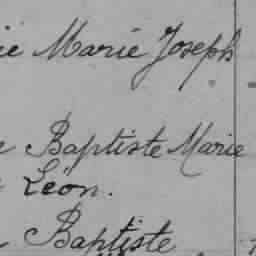 Marie Joseph
Baptiste Marie
Léon.
Baptiste